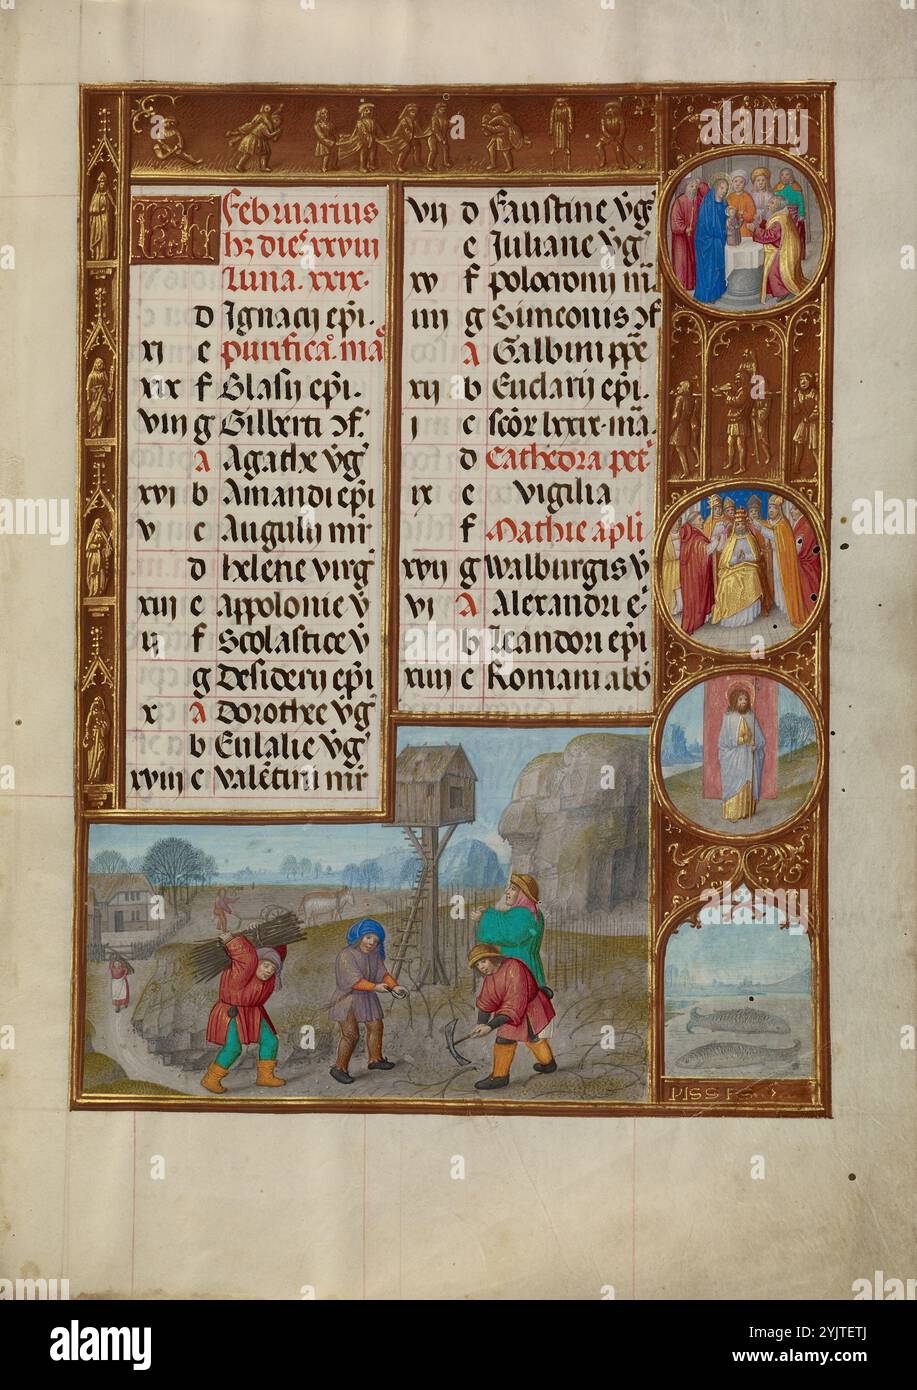 KL Februarius
hꝫ dies xxviii
Luna. xxix.
d Ignacij ep̄i.
xi e purifica. ma
xix f Blasij ep̄i.
viii g Gilberti ɔf.
A Agathe v̄g
xvi b Amandi ep̄i
v c Augulij mr̄
d helene virg
xiii e Appolonie v̄
ij f Scolastice v̄
g Desiderij ep̄i
x A Dorothee v̄g
b Eulalie v̄g
xviii c valētini mr̄
vij d Faustine v̄g
e Juliane v̄g
xv f policronij m̄
iiij g Simeonis ɔf
A Galbini pp̄e
xij b Euclarij ep̄i.
i c scōr lxxix. ma.
d Cathedra pet
ix e vigilia
f Mathie apl̄i
xvij g walburgis v̄
vi A Alexandri e
b Leandri ep̄i
xiiij c Romani abb̄
PISSES
a
alamy
Image ID: 2YJTETJ
www.alamy.com